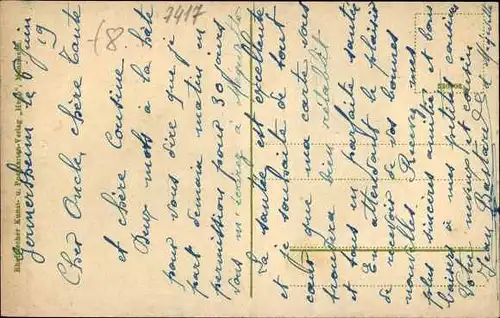 7417
(8.
Germersheim le 6 Juin
19
Cher Oncle, chère Tante
et chère Cousine
Deux mots à la hâte
pour vous dire que je
part demain matin en
permission pour 30 jours
La santée est excellente
et je souhaite de tout
cœur que ma carte vous
trouvera bien rétablit
et en parfaite santé
En attendant le plaisir
de recevoir de vos bonnes
nouvelles. Recevez mes
plus sincères amitiés et bons
baisers à mes petites cousines
Votre neveu et cousin
Jean